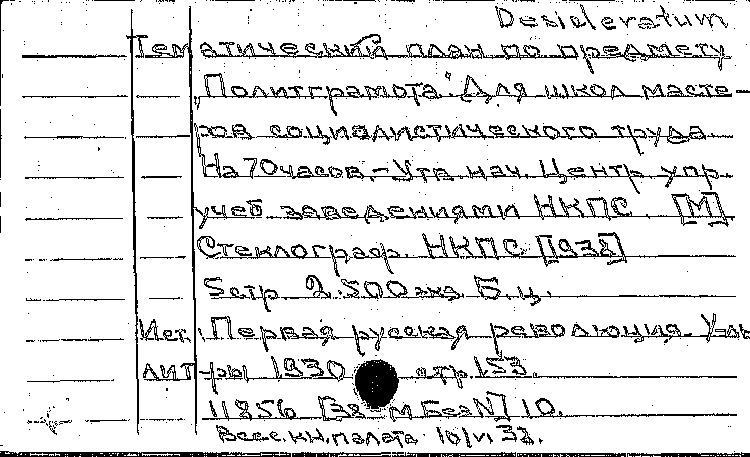 Desideratum
Тематический план по предмету
„Политграмота“. Для школ масте-
ров социалистического труда.
На 70 часов. - Утв. нач. Центр. упр.
учеб. заведениями НКПС. [М]
Стеклограф. НКПС [1938]
5 стр. 2.500 экз. Б. ц.
Ист.: Первая русская революция. Ук-ль
лит-ры 1930 стр. 153.
11856 [38 - М Без N] 10.
Всес. кн. палата 10/VI 38.